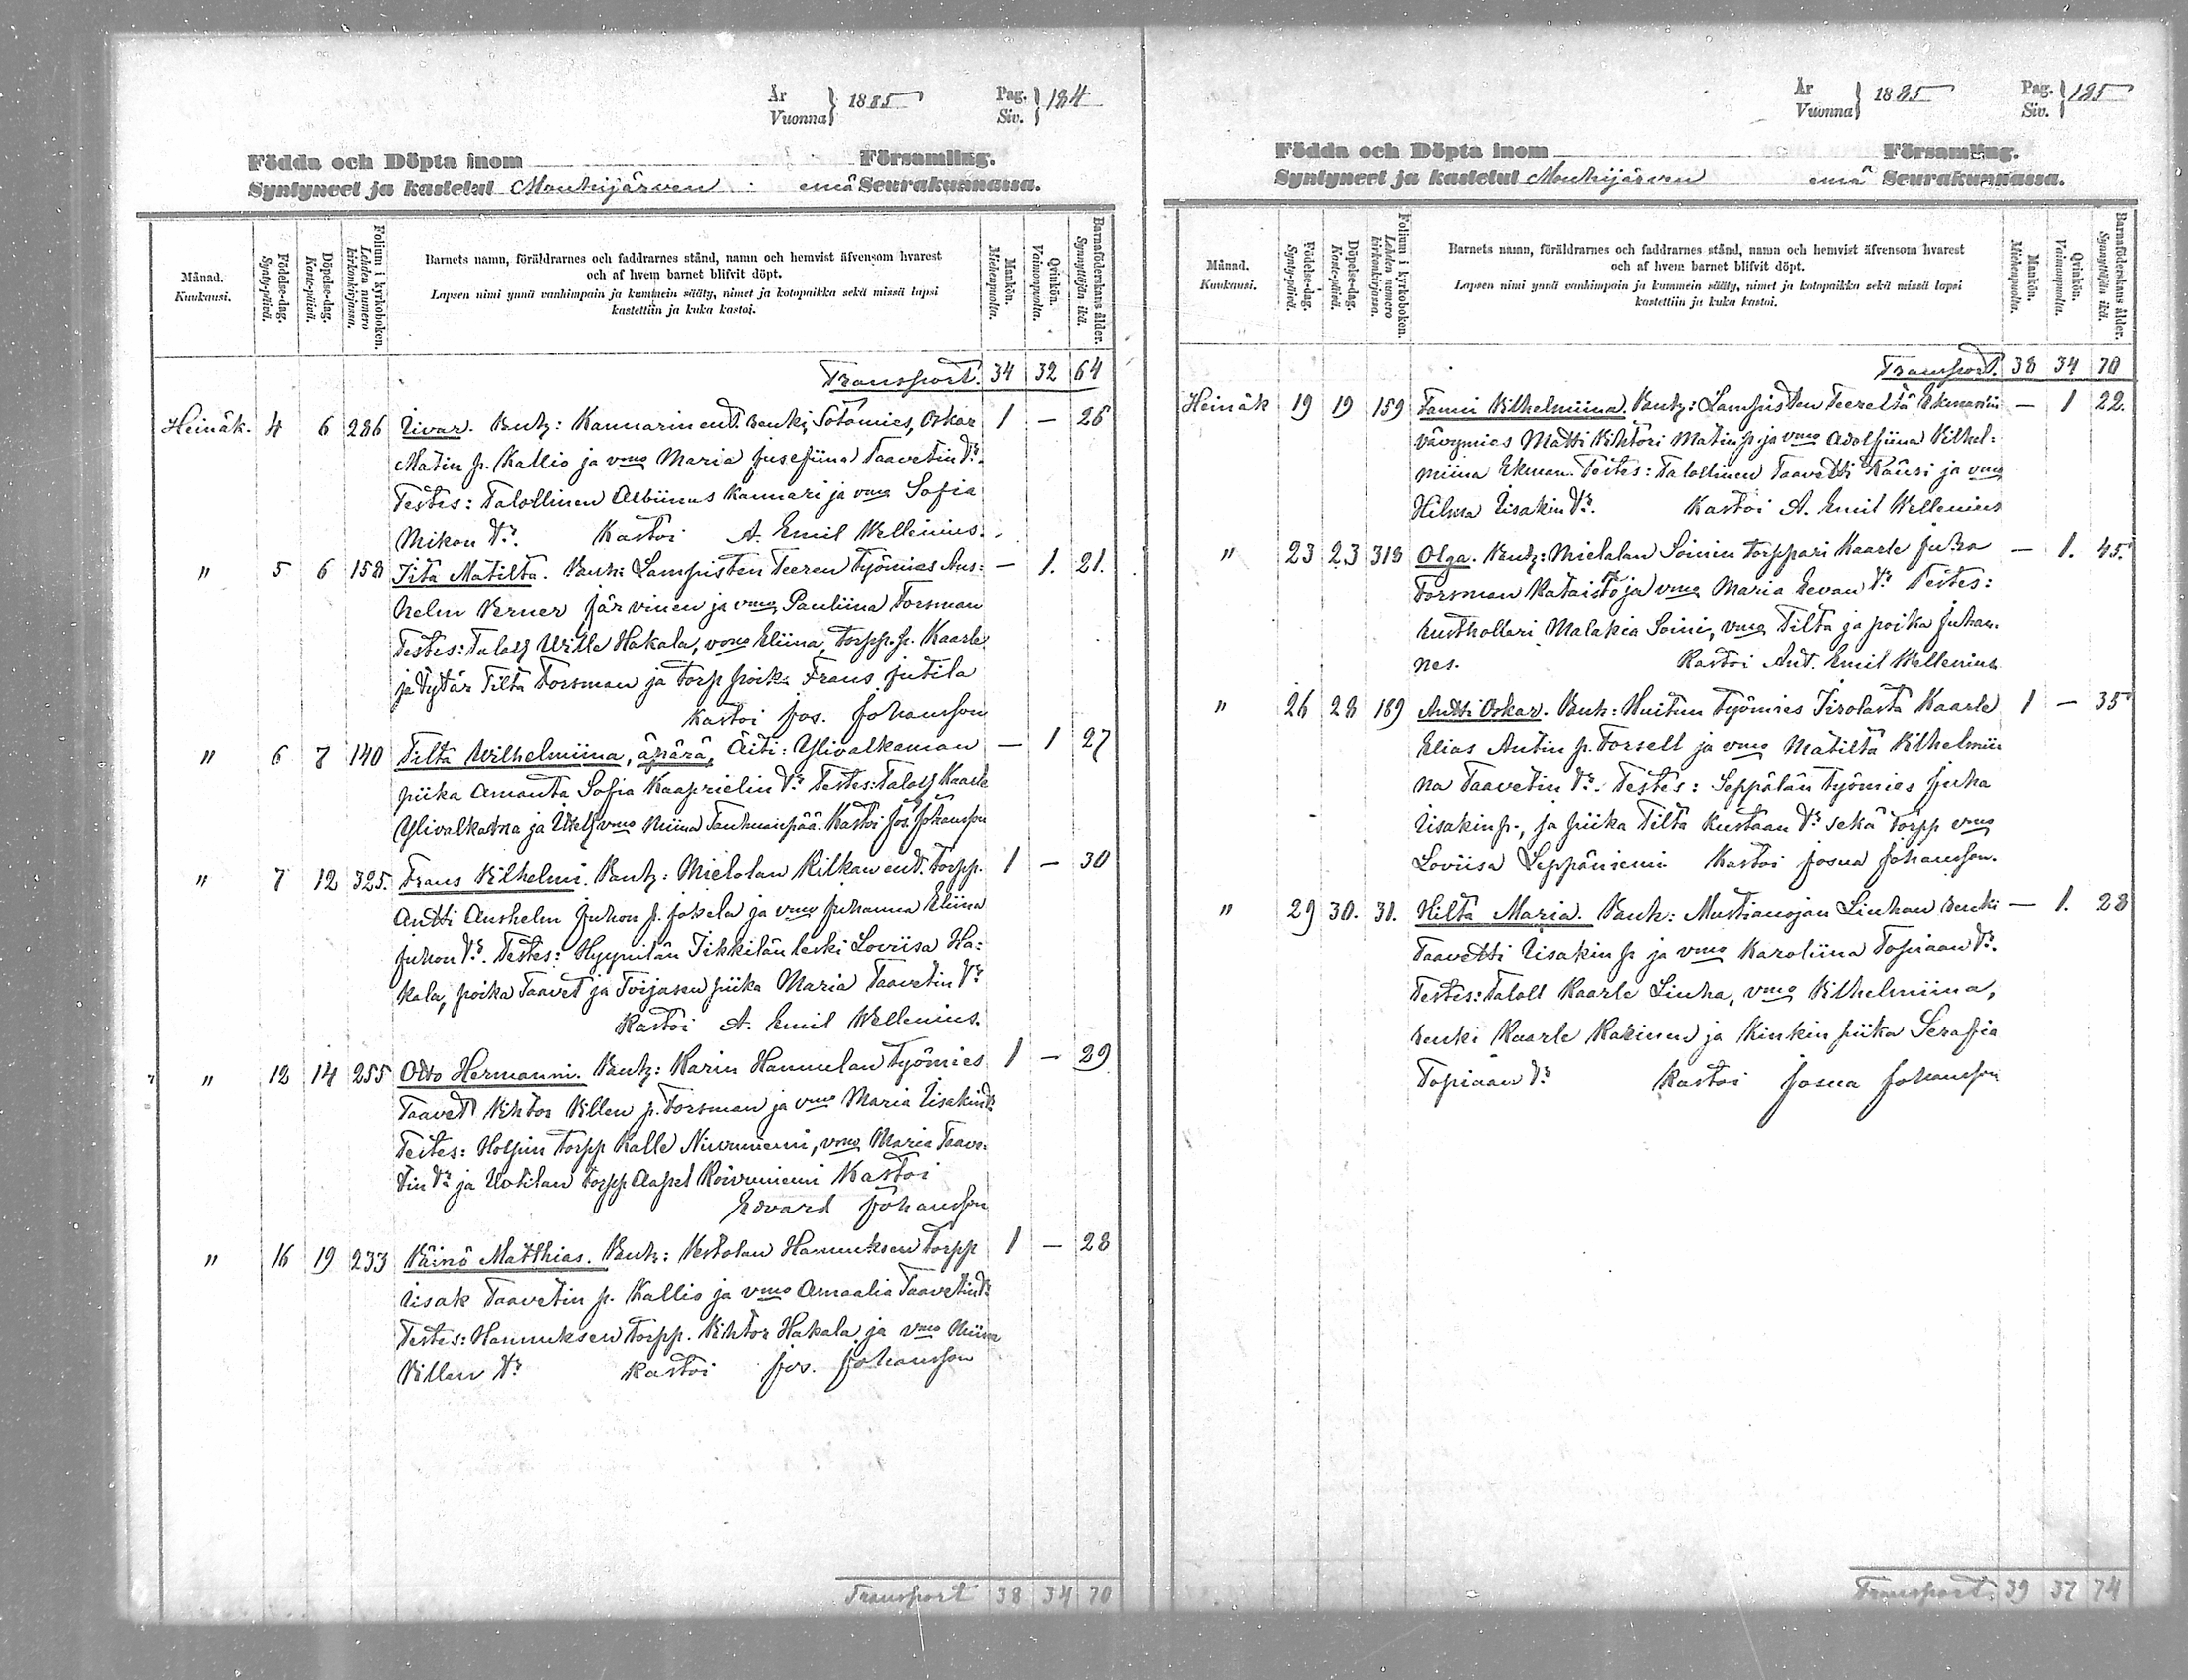 År
Vuonna } 1885
Pag.
Siv. } 184
Födda och Döpta inom Församling.
Syntyneet ja kastetut Mouhijärven emä Seurakunnassa.
Månad.
Kuukausi.
Födelse-dag.
Synty-päivä.
Döpelse-dag.
Kaste-päivä.
Folium i kyrkoboken.
Lehden numero kirkonkirjassa.
Barnets namn, föräldrarnes och faddrarnes stånd, namn och hemvist äfvensom hvarest
och af hvem barnet blifvit döpt.
Lapsen nimi ynnä vanhimpain ja kummein sääty, nimet ja kotopaikka sekä missä lapsi
kastettiin ja kuka kastoi.
Mankön.
Miehenpuolia.
Qvinkön.
Vaimonpuolia.
Barnaföderskans ålder.
Synnyttäjän ikä.
Transport. 34 32 64
Heinäk. 4 6 286 Iivar. Vanh: Kannarin ent. renki, Sotamies, Oskar 1 — 26
Matin p. Kallio ja vmo Maria Josefiina Taavetin tr.
Testes: Talollinen Albiinus Kannari ja vmo Sofia
Mikon tr. Kastoi A. Emil Wellenius.
" 5 6 158 Iita Matilta. Vanh: Lampisten Teeren työmies Ans: — 1. 21.
helm Verner Järvinen ja vmo Pauliina Forsman
Testes: Taloll Wille Hakala, vmo Eliina, torpp. p. Kaarle
ja tytär Tilta Forsman ja torp poika Frans Jutila
Kastoi Jos. Johansson
" 6 7 140 Tilta Wilhelmiina, äpärä, Äiti: Ylivalkaman — 1 27
piika Amanta Sofia Kaaprielin tr Testes: Taloll Kaarle
Ylivalkama ja vmo Miina Tanhuanpää. Kastoi Jos. Johansson
" 7 12 325. Frans Vilhelmi. Vanh: Mielolan Kilkan ent. torpp. 1 — 30
Antti Anshelm Juhon p. Jokela ja vmo Juhanna Eliina
Juhon tr. Testes: Hyynilän Tikkilän leski Loviisa Ha:
kala, poika Taavet ja Toijasen piika Maria Taavetin tr
Kastoi A. Emil Wellenius.
" 12 14 255 Otto Hermanni. Vanh: Karin Hannulan työmies 1 — 29
Taavet Vihtor Villen p. Forsman ja vmo Maria Iisakin tr
Testes: Holpin torpp Kalle Niuruniemi, vmo Maria Taave-
tin tr ja Uotilan torpp Aapel Koivuniemi Kastoi
Edvard Johansson
" 16 19 233 Väinö Matthias. Vanh: Vestolan Hannuksen torpp 1 — 28
Iisak Taavetin p. Kallio ja vmo Amaalia Taavetin tr
Testes: Hannuksen torpp. Vihtor Hakala ja vmo Miina
Villen tr Kastoi Jos. Johansson
Transport 38 34 70
År
Vuonna } 1885
Pag.
Siv. } 185
Födda och Döpta inom Församling.
Syntyneet ja kastetut Mouhijärven emä Seurakunnassa.
Månad.
Kuukausi.
Födelse-dag.
Synty-päivä.
Döpelse-dag.
Kaste-päivä.
Folium i kyrkoboken.
Lehden numero kirkonkirjassa.
Barnets namn, föräldrarnes och faddrarnes stånd, namn och hemvist äfvensom hvarest
och af hvem barnet blifvit döpt.
Lapsen nimi ynnä vanhimpain ja kummein sääty, nimet ja kotopaikka sekä missä lapsi
kastettiin ja kuka kastoi.
Mankön.
Miehenpuolia.
Qvinkön.
Vaimonpuolia.
Barnaföderskans ålder.
Synnyttäjän ikä.
Transport. 38 34 70
Heinäk 19 19 159 Fanni Vilhelmiina. Vanh: Lampisten Teereltä Ekmannin — 1 22.
vävymies Matti Vihtori Matin p. ja vmo Adolfiina Vilhel:
miina Ekman. Testes: Talollinen Taavetti Käuri ja vmo
Hilma Iisakin tr. Kastoi A. Emil Wellenius
" 23 23 313 Olga. Vanh: Mielolan Soinin torppari Kaarle Juha — 1. 45.
Forsman Kataisto ja vmo Maria Eevan tr Testes:
Rusthollari Malakia Soini, vmo Tilta ja poika Juhan-
nes. Kastoi Ant. Emil Wellenius
" 26 28 189 Antti Oskar. Vanh: Huitun työmies Iirolasta Kaarle 1 — 35
Elias Antin p. Forsell ja vmo Matilta Vilhelmii
na Taavetin tr. Testes: Seppälän työmies Juha
Iisakin p., ja piika Tilta Kustaan tr sekä torpp vmo
Loviisa Leppäniemi Kastoi Josua Johansson.
" 29 30. 31. Hilta Maria. Vanh: Mustianojan Linhan renki — 1. 28
Taavetti Iisakin p ja vmo Karoliina Topiaan tr.
Testes: Taloll Kaarle Linha, vmo Vilhelmiina,
renki Kaarle Rakinen ja Kinkin piika Serafia
Topiaan tr Kastoi Josua Johansson
Transport. 39 37 74